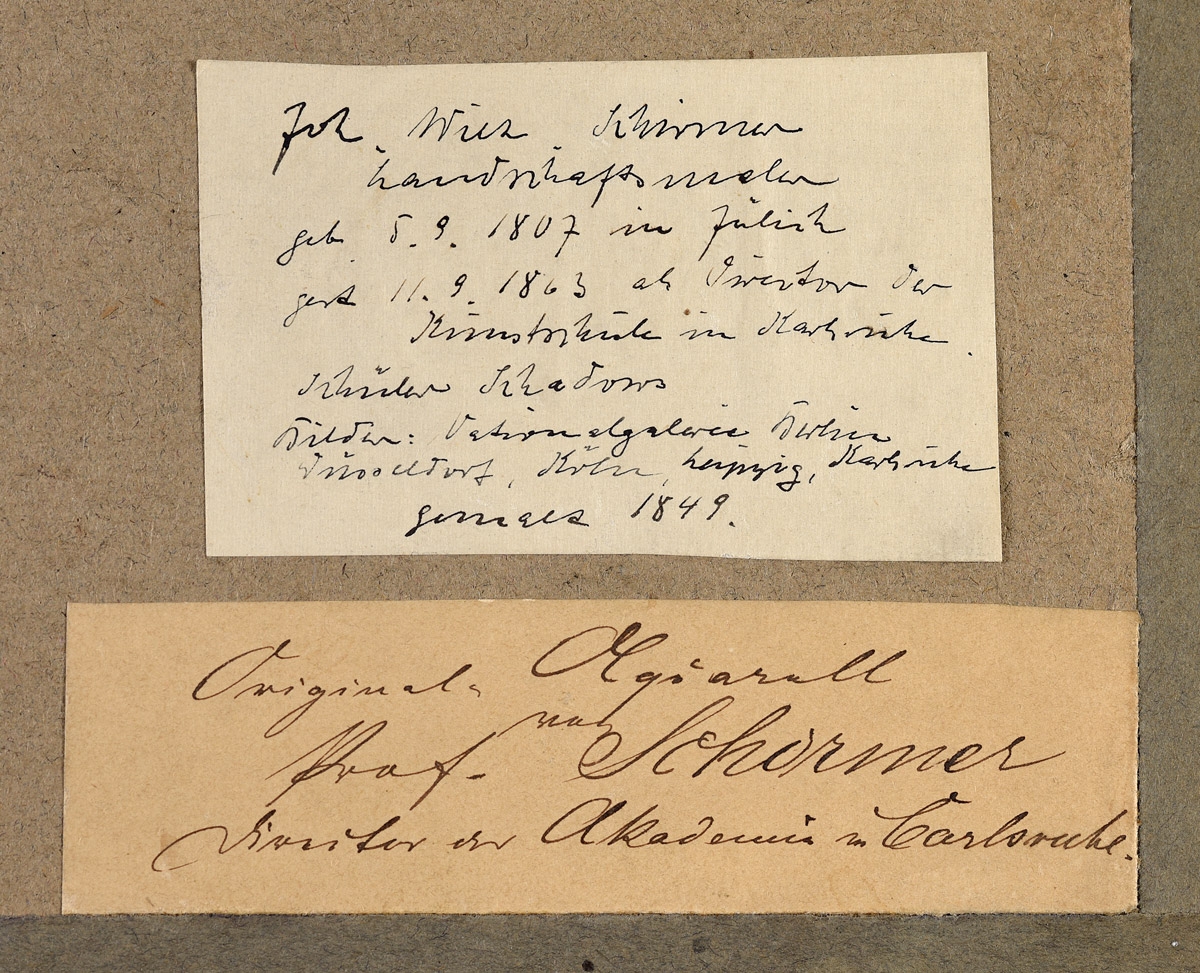 Joh. Wilh Schirmer
Landschaftsmaler
geb 5.9. 1807 in Jülich
gest 11.9. 1863 als Director der
Kunstschule in Karlsruhe.
Schüler Schadows
Bilder: Nationalgalerie Berlin
Düsseldorf, Köln, Leipzig, Karlsruhe
gemalt 1849.
Original-Aquarell
von
Prof. Schirmer
Director der Akademie in Carlsruhe.